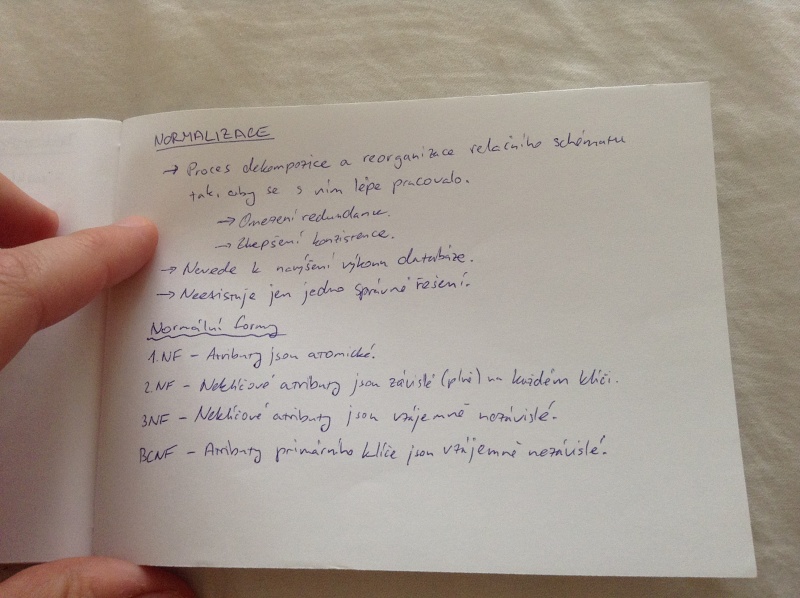 NORMALIZACE
→ Proces dekompozice a reorganizace relačního schématu
tak, aby se s ním lépe pracovalo.
→ Omezení redundance.
→ Zlepšení konzistence.
→ Nevede k navýšení výkonu databáze.
→ Neexistuje jen jedno správné řešení.
Normální formy
1.NF – Atributy jsou atomické.
2.NF – Neklíčové atributy jsou závislé (plně) na každém klíči.
3NF – Neklíčové atributy jsou vzájemně nezávislé.
BCNF – Atributy primárního klíče jsou vzájemně nezávislé.